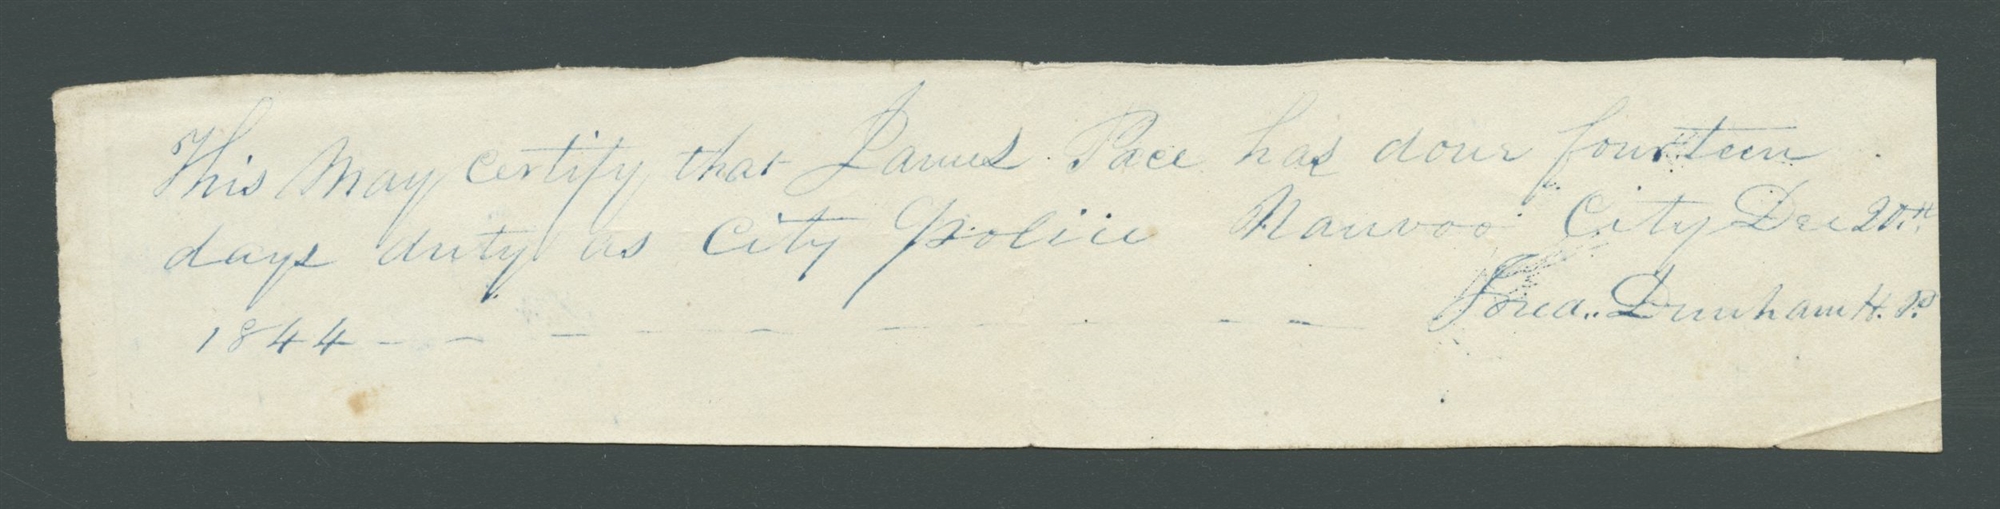 This May certify that James Pace has done fourteen
days duty as City Police Nauvoo City Dec 20th
1844 - - - - - - - - - Dunham H. P.